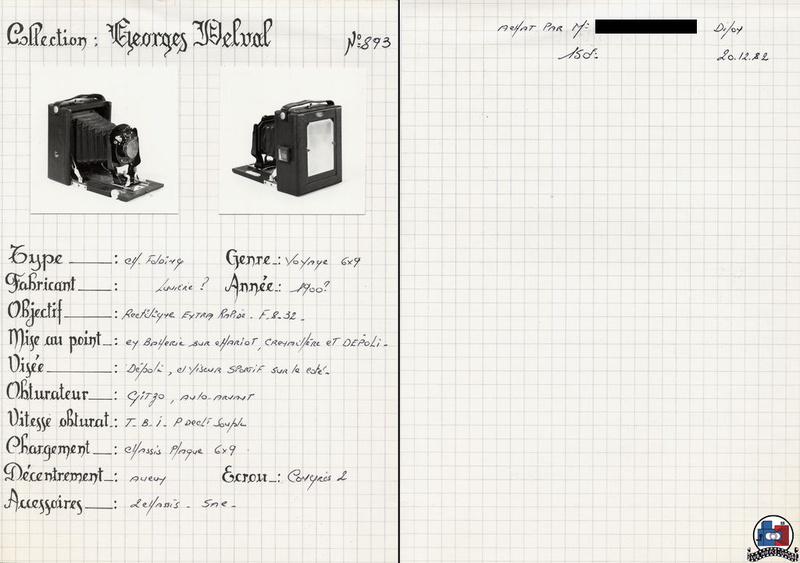 Collection : Georges Delval N°:893
Type : ch. Folding Genre : Voyage 6x9
Fabricant : Lumière ? Année : 1900?
Objectif : Rectiligne EXTRA RAPIDE - F.8-32 -
Mise au point : en Batterie sur chariot, CREMAILLÈRE ET DÉPOLI -
Visée : Dépoli, et Viseur SPORTIF sur le coté -
Obturateur : Gitzo, AUTO-ARMANT
Vitesse obturat. : T. B. i. P Decli Souple
Chargement : chassis Plaque 6x9
Décentrement : aucun Ecrou : Congrès 2
Accessoires : 2 chassis - Sac -
ACHAT PAR Mr Dijon
150F. 20.12.82